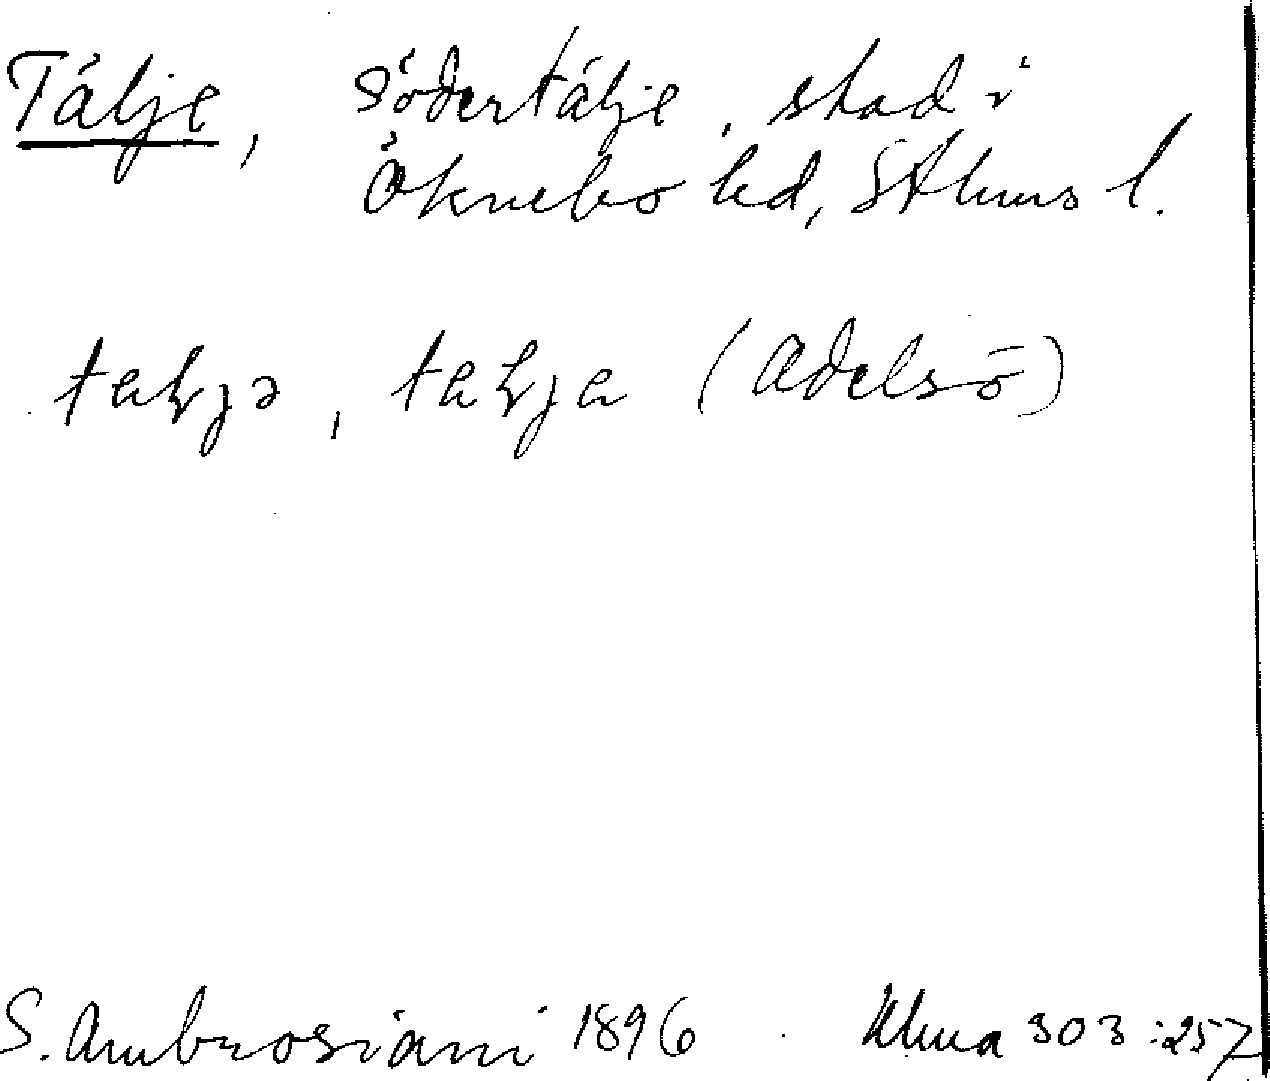 Tälje, Södertälje, stad i
Öknebo hd, Sthms l.
talja, talja (Adelsö)
S. Ambrosiani 1896 Uma 303:257